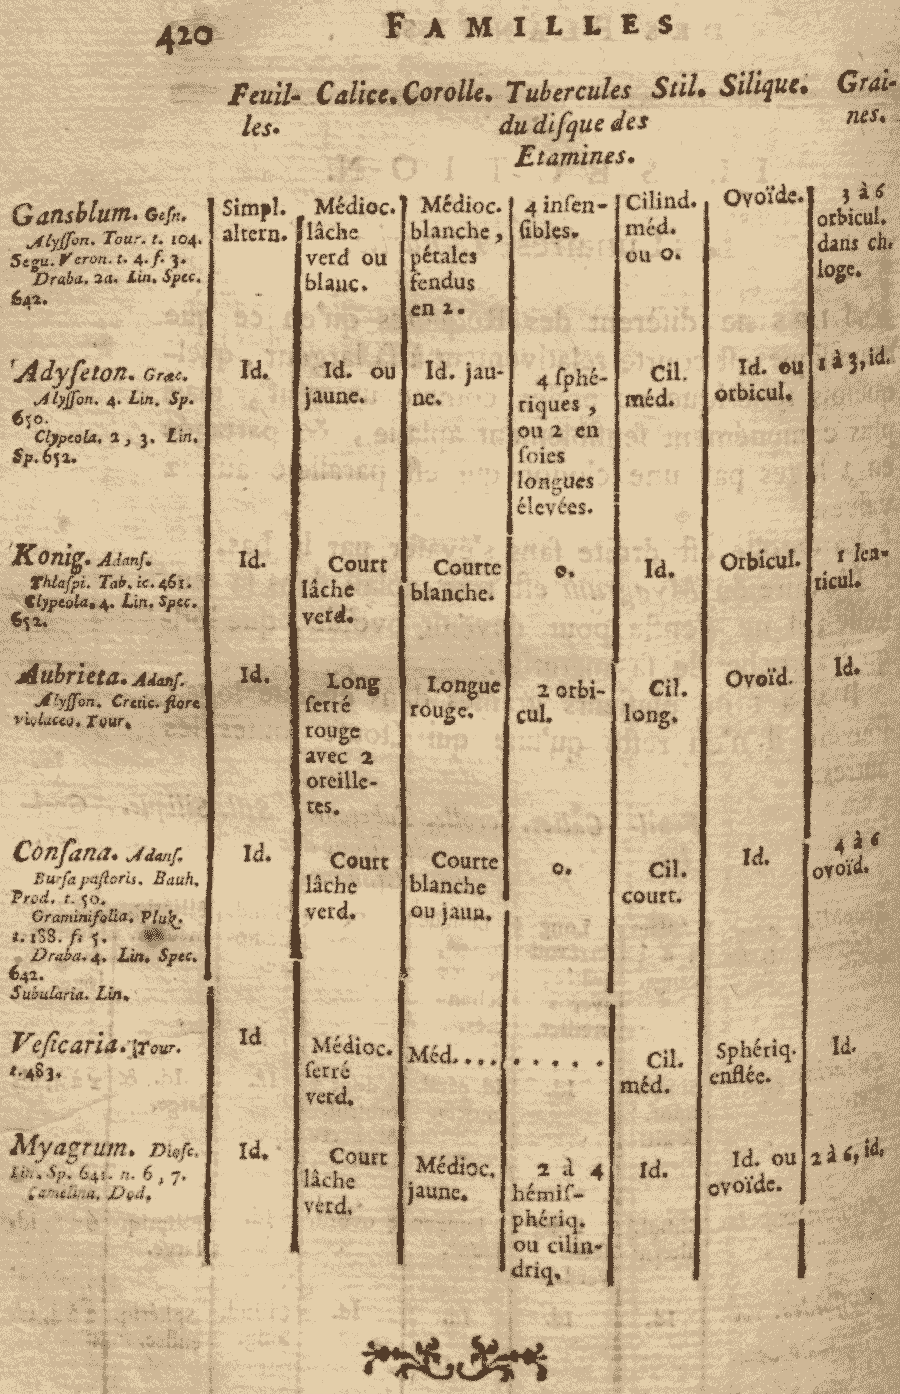 420 FAMILLES
Feuil- Calice. Corolle. Tubercules Stil. Silique. Grai-
les. du diſque des nes.
Etamines.
Gansblum. Geſn.
Alyſſon. Tour. t. 104.
Segu. Veron. t. 4. f. 3.
Draba. 2a. Lin. Spec.
642.
Simpl.
altern.
Médioc.
lâche
verd ou
blanc.
Médioc.
blanche,
pétales
fendus
en 2.
4 inſen-
ſibles.
Cilind.
méd.
ou 0.
Ovoïde.
3 à 6
orbicul.
dans ch.
loge.
Adyſeton. Græc.
Alyſſon. 4. Lin. Sp.
650.
Clypeola. 2, 3. Lin.
Sp. 652.
Id.
Id. ou
jaune.
Id. jau-
ne.
4 ſphé-
riques,
ou 2 en
ſoies
longues
élevées.
Cil.
méd.
Id. ou
orbicul.
1 à 3, id.
Konig. Adanſ.
Thlaſpi. Tab. ic. 461.
Clypeola. 4. Lin. Spec.
652.
Id.
Court
lâche
verd.
Courte
blanche.
0.
Id.
Orbicul.
1 len-
ticul.
Aubrieta. Adanſ.
Alyſſon. Cretic. flore
violaceo. Tour.
Id.
Long
ſerré
rouge
avec 2
oreille-
tes.
Longue
rouge.
2 orbi-
cul.
Cil.
long.
Ovoïd.
Id.
Conſana. Adanſ.
Burſa paſtoris. Bauh.
Prod. t. 50.
Graminifolia. Pluk.
t. 188. f. 5.
Draba. 4. Lin. Spec.
642.
Subularia. Lin.
Id.
Court
lâche
verd.
Courte
blanche
ou jaun.
0.
Cil.
court.
Id.
4 à 6
ovoïd.
Veſicaria. Tour.
t. 483.
Id
Médioc.
ſerré
verd.
Méd.... .....
Cil.
méd.
Sphériq.
enflée.
Id.
Myagrum. Dioſc.
Lin. Sp. 641. n. 6, 7.
Camelina. Dod.
Id.
Court
lâche
verd.
Médioc.
jaune.
2 à 4
hémiſ-
phériq.
ou cilin-
driq.
Id.
Id. ou
ovoïde.
2 à 6, id.